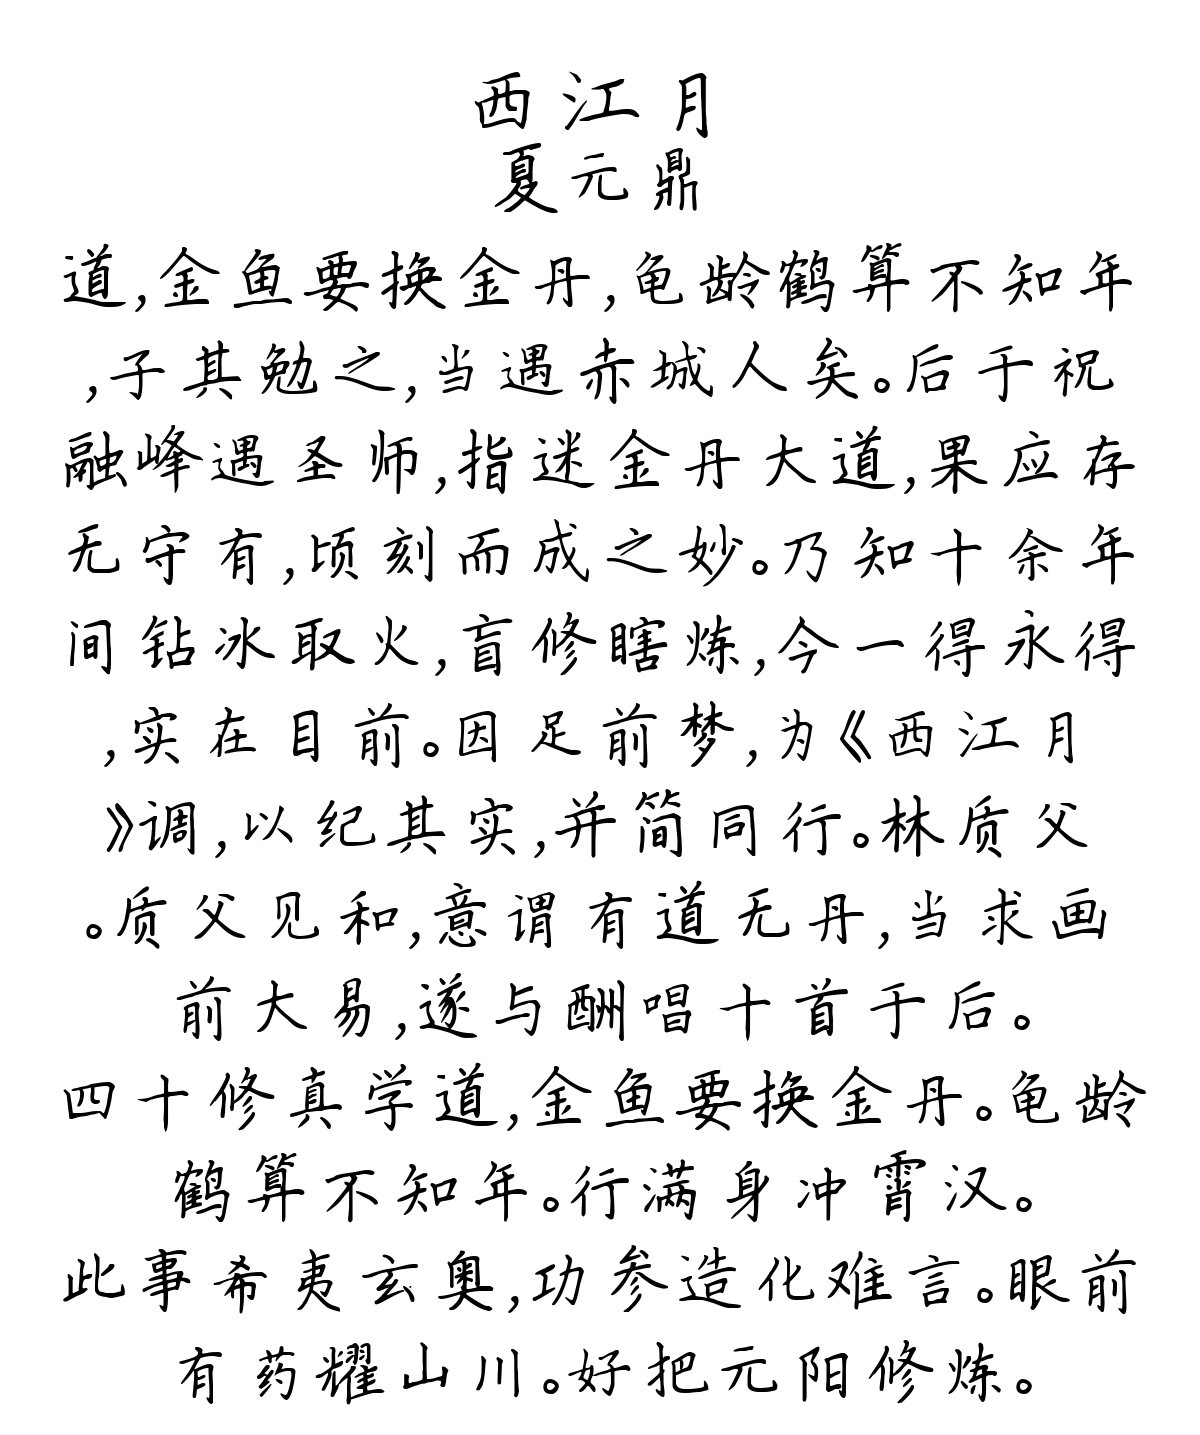 西江月
夏元鼎
道,金鱼要换金丹,龟龄鹤算不知年
,子其勉之,当遇赤城人矣。后于祝
融峰遇圣师,指迷金丹大道,果应存
无守有,顷刻而成之妙。乃知十余年
间钻冰取火,盲修瞎炼,今一得永得
,实在目前。因足前梦,为《西江月
》调,以纪其实,并简同行。林质父
。质父见和,意谓有道无丹,当求画
前大易,遂与酬唱十首于后。
四十修真学道,金鱼要换金丹。龟龄
鹤算不知年。行满身冲霄汉。
此事希夷玄奥,功参造化难言。眼前
有药耀山川。好把元阳修炼。